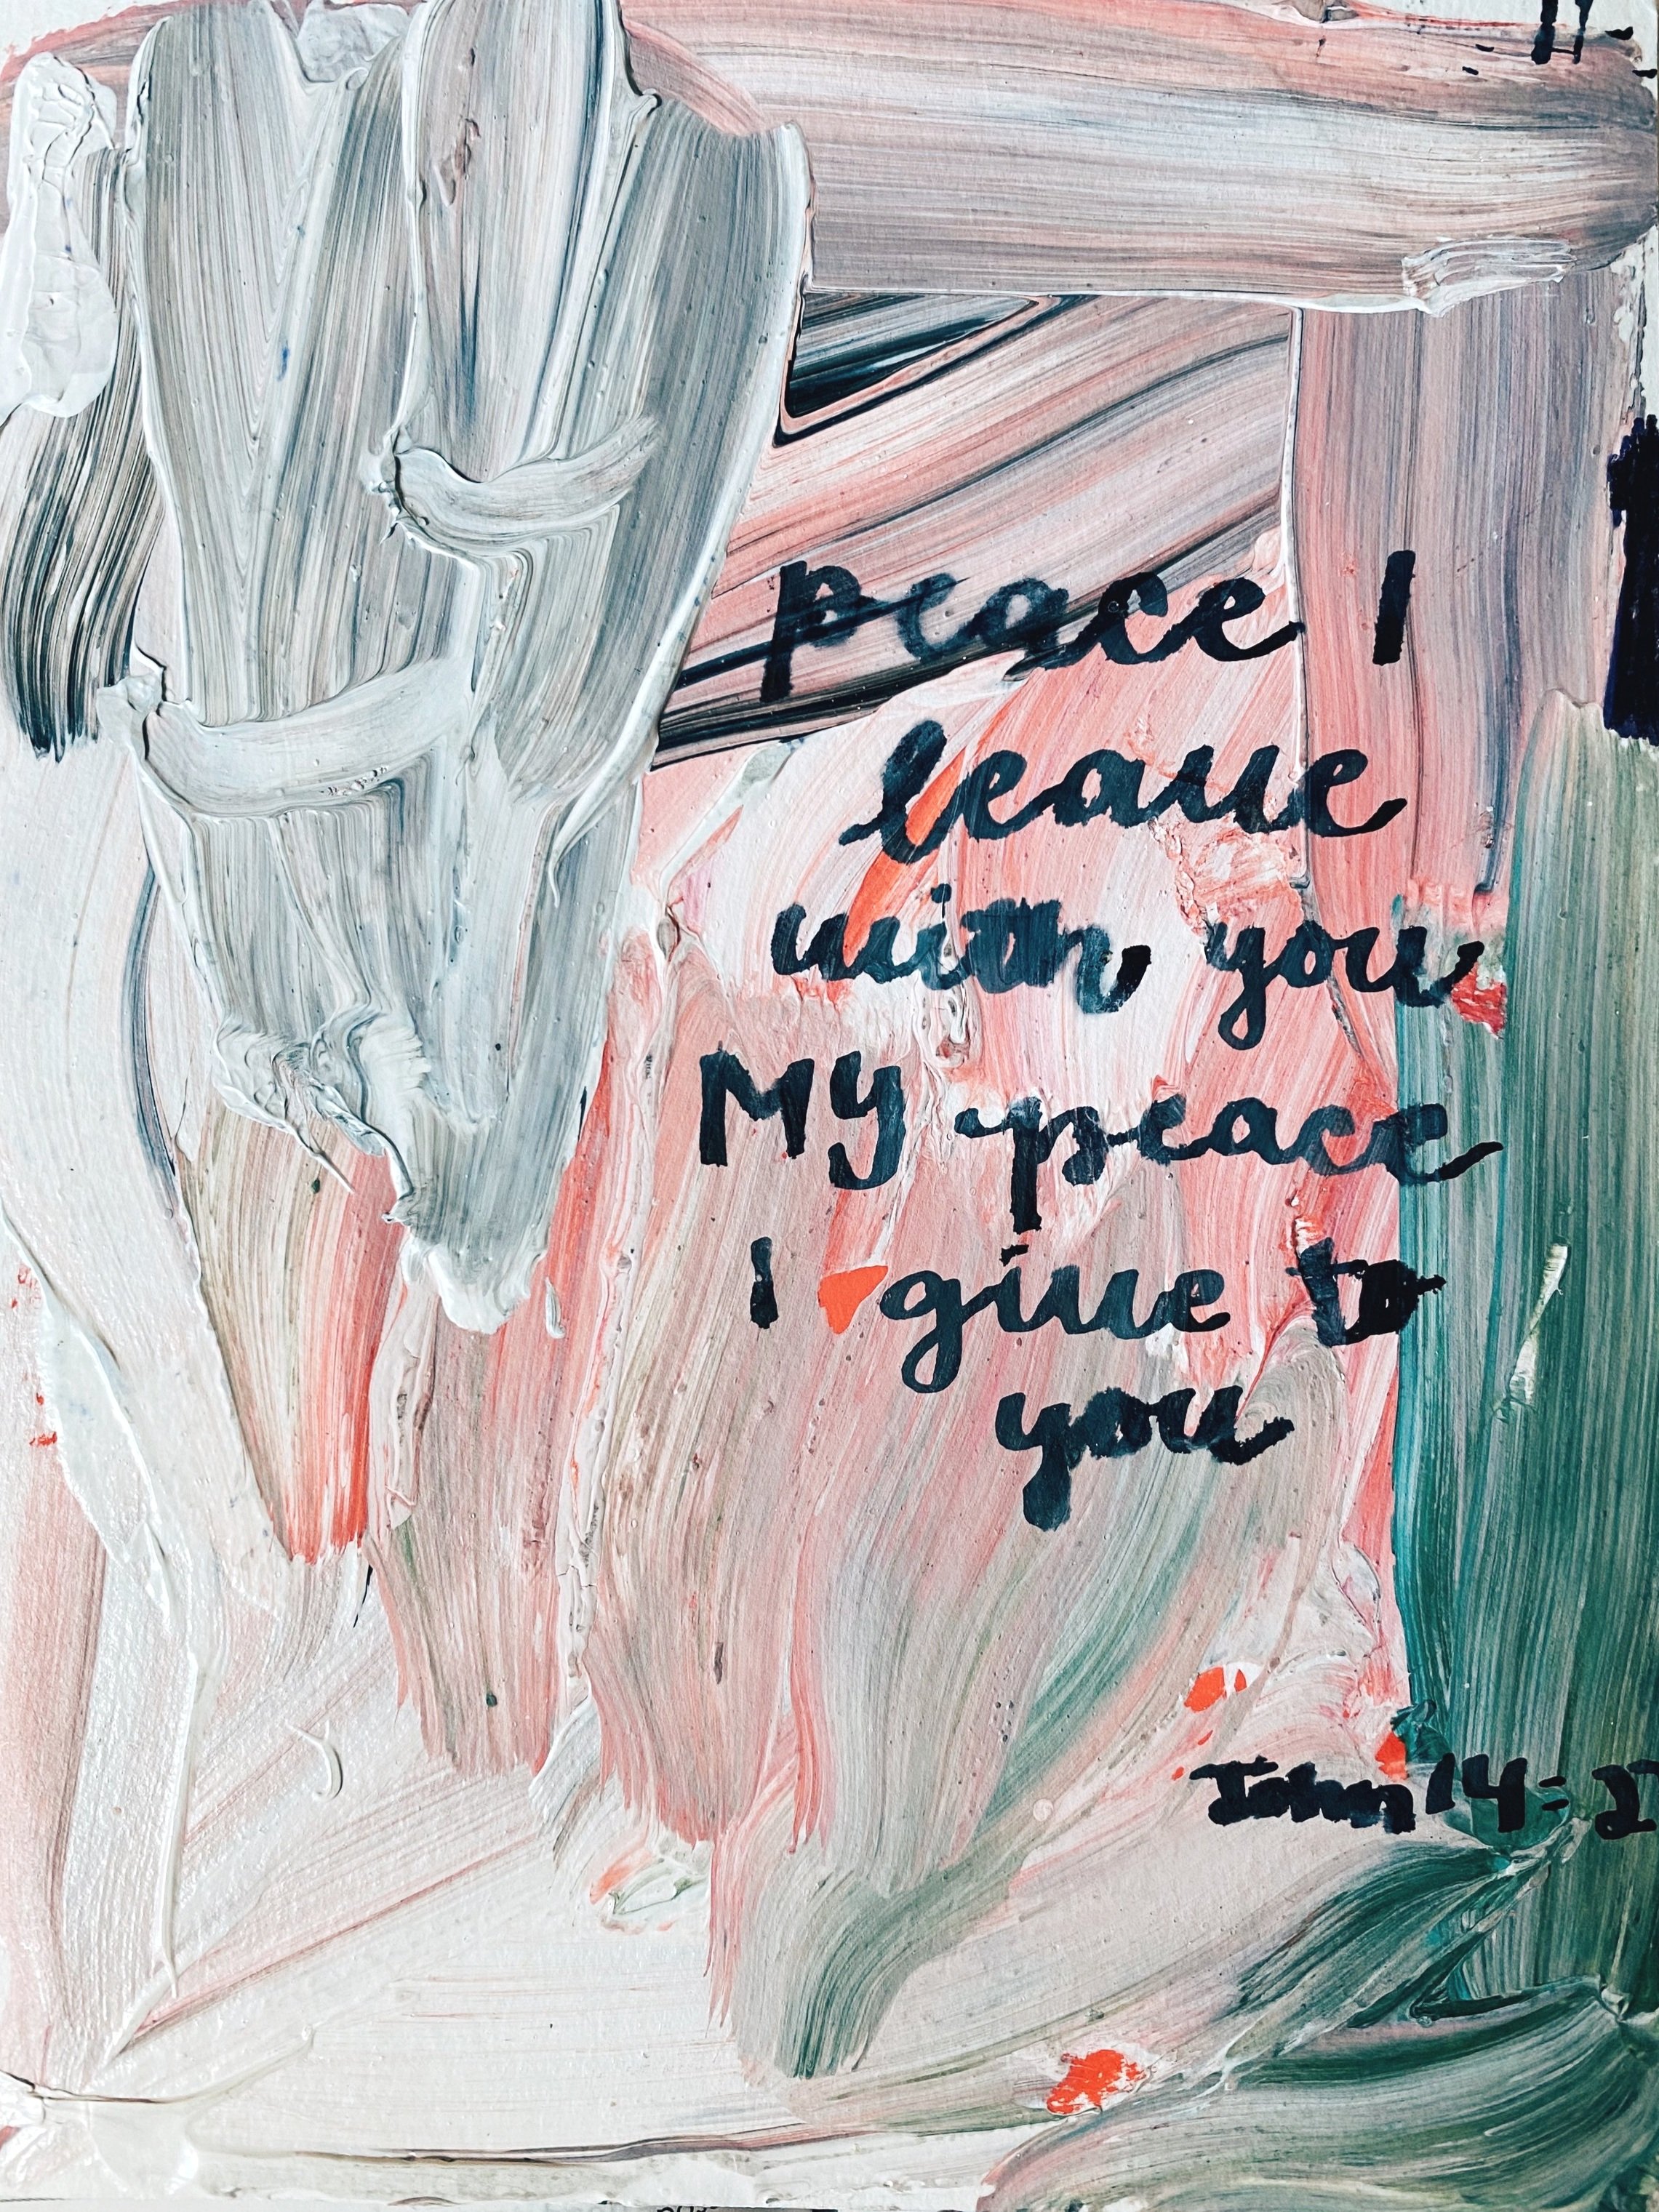 peace I
leave
with you
My peace
I give to
you
John 14:27